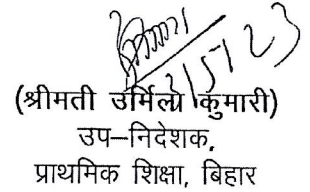 2/5/23
(श्रीमती उर्मिला कुमारी)
उप–निदेशक,
प्राथमिक शिक्षा, बिहार